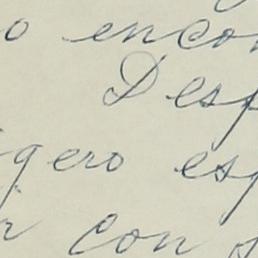 o encon
Desp
gero esp
r con s